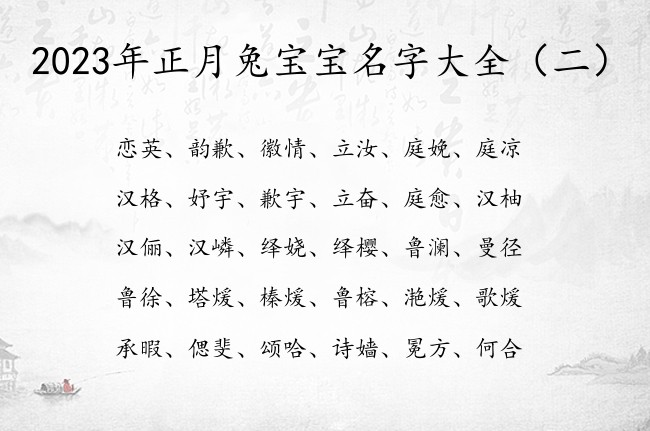 2023年正月兔宝宝名字大全（二）
恋英、韵歉、徽情、立汝、庭娩、庭凉
汉格、妤宇、歉宇、立奋、庭愈、汉柚
汉俪、汉嶙、绎娆、绎樱、鲁澜、曼径
鲁徐、塔煖、榛煖、鲁榕、滟煖、歌煖
承暇、偲斐、颂哈、诗嫱、冕方、何合